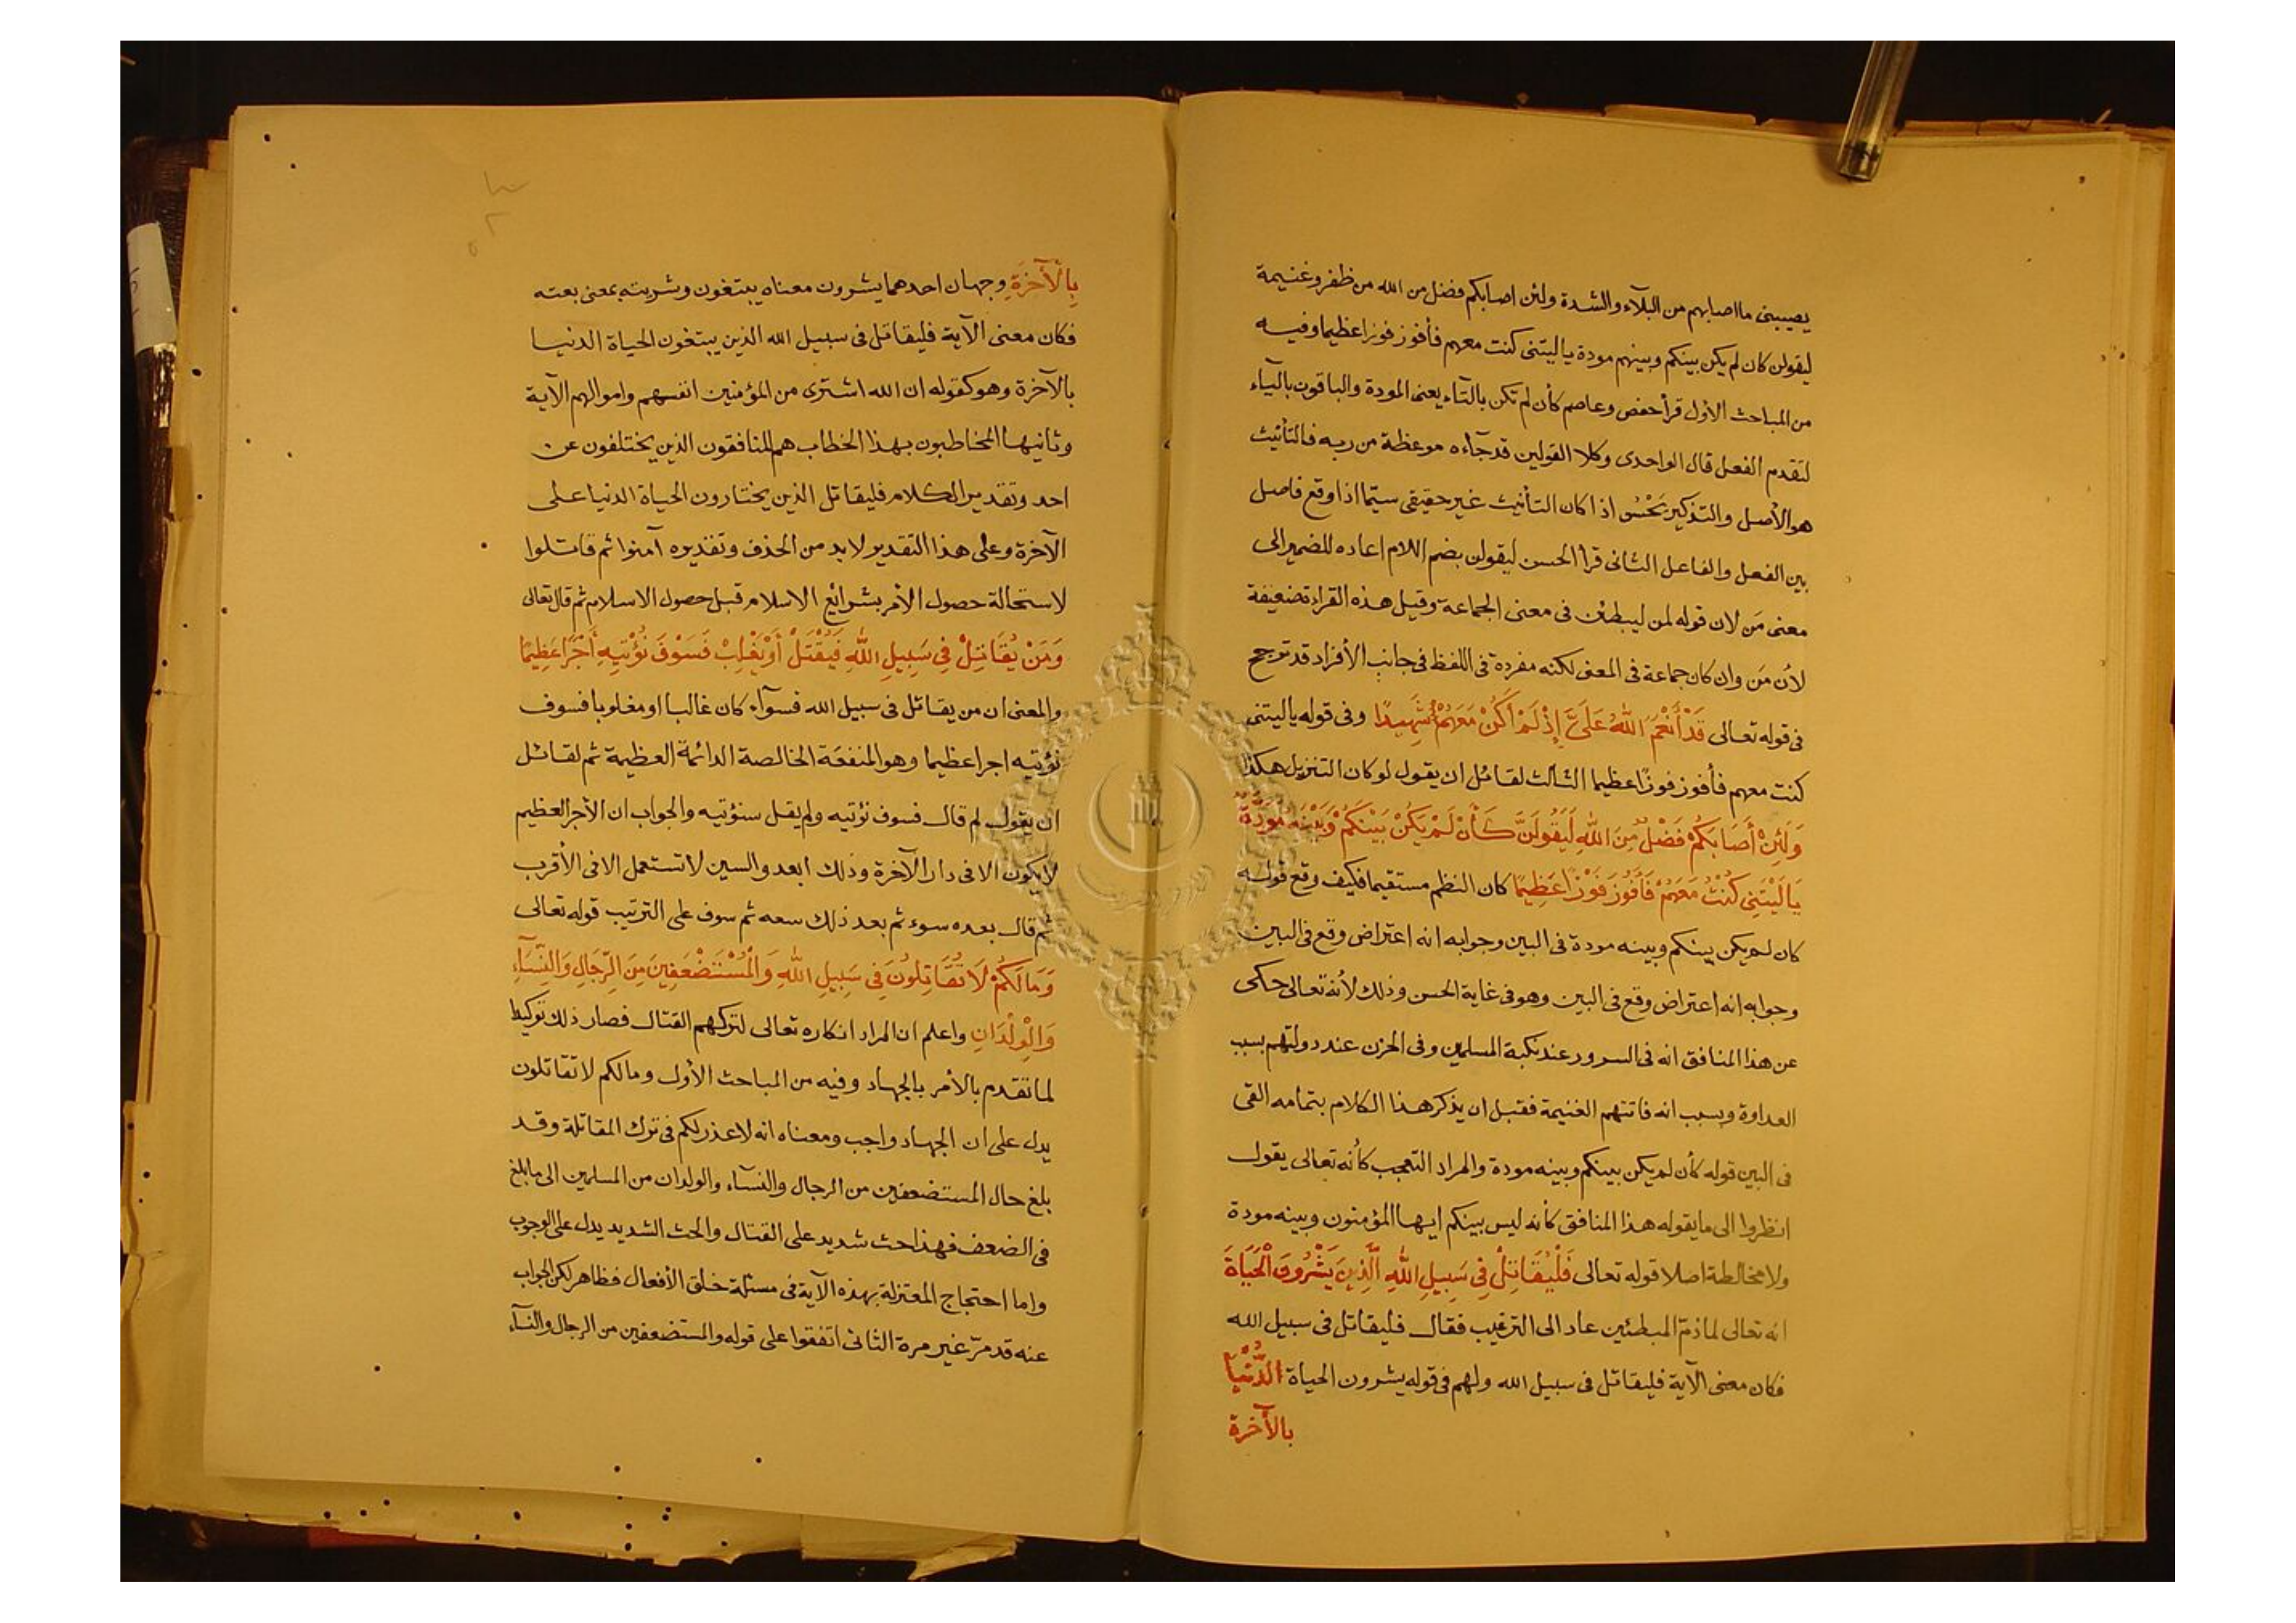 يصيبنى ما اصابهم من البلآء والشدة ولئن اصابكم فضل من الله من ظفر وغنيمة
ليقولن كان لم يكن بينكم وبينهم مودة ياليتنى كنت معهم فأفوز فوزا عظيما وفيه
من المباحث الأول قرأ حفص وعاصم كأن لم تكن بالتآء يعنى المودة والباقون باليآء
لتقدم الفعل قال الواحدى وكلا القولين قد جآءه موعظة من ربه فالتأنيث
هو الأصل والتذكير يَحْسُن اذا كان التأنيث غير حقيقى سيّما اذا وقع فاصل
بين الفعل والفاعل الثانى قرأ الحسن ليقولن بضم اللام اعاده للضمير الى
معنى مَن لان قوله لمن ليبطئن فى معنى الجماعة وقيل هذه القراءة ضعيفة
لأن مَن وان كان جماعة فى المعنى لكنه مفردة فى اللفظ فى جانب الأفراد قد ترجح
فى قوله تعالى قَدْ أَنْعَمَ اللّٰهُ عَلَىَّ إِذْ لَمْ أَكُنْ مَعَهُمْ شَهِيدًا وفى قوله ياليتنى
كنت معهم فأفوز فوزًا عظيما الثالث لقائل ان يقول لو كان التنزيل هكذا
وَلَئِنْ أَصَابَكُمْ فَضْلٌ مِنَ اللّٰهِ لَيَقُولَنَّ كَأَنْ لَمْ يَكُنْ بَيْنَكُمْ وَبَيْنَهُ مَوَدَّةٌ
يَالَيْتَنِى كُنْتُ مَعَهُمْ فَأَفُوزَ فَوْزًا عَظِيمًا كان النظم مستقيما فكيف وقع قوله
كان لم يكن بينكم وبينه مودة فى البين وجوابه انه اعتراض وقع فى البين
وجوابه انه اعتراض وقع فى البين وهو فى غاية الحسن وذلك لأنه تعالى حكى
عن هذا المنافق انه فى السرور عند نكبة المسلمين وفى الحزن عند دولتهم بسبب
العداوة وبسبب انه فاتتهم الغنيمة فقبل ان يذكر هذا الكلام بتمامه القى
فى البين قوله كأن لم يكن بينكم وبينه مودة والمراد التعجب كأنه تعالى يقول
انظروا الى ما يقوله هذا المنافق كأنه ليس بينكم ايها المؤمنون وبينه مودة
ولا مخالطة اصلا قوله تعالى فَلْيُقَاتِلْ فِى سَبِيلِ اللّٰهِ الَّذِينَ يَشْرُونَ الْحَيَاةَ
انه تعالى لما ذمّ المبطئين عاد الى الترغيب فقال فليقاتل فى سبيل الله
فكان معنى الآية فليقاتل فى سبيل الله ولهم فى قوله يشرون الحياة الدُّنْيَا
بالآخرة
بِالْآخِرَةِ وجهان احدهما يشرون معناه يبتغون وشريته بمعنى بعته
فكان معنى الآية فليقاتل فى سبيل الله الذين يبتغون الحياة الدنيا
بالآخرة وهو كقوله ان الله اشترى من المؤمنين انفسهم واموالهم الآية
وثانيها المخاطبون بهذا الخطاب هم المنافقون الذين يختلفون عن
احد وتقدير الكلام فليقاتل الذين يختارون الحياة الدنيا على
الآخرة وعلى هذا التقدير لابد من الحذف وتقديره آمنوا ثم قاتلوا
لاستحالة حصول الأمر بشرائع الاسلام قبل حصول الاسلام ثم قال تعالى
وَمَنْ يُقَاتِلْ فِى سَبِيلِ اللّٰهِ فَيُقْتَلْ أَوْ يَغْلِبْ فَسَوْفَ نُؤْتِيهِ أَجْرًا عَظِيمًا
والمعنى ان من يقاتل فى سبيل الله فسوآء كان غالبا او مغلوبا فسوف
نؤتيه اجرا عظيما وهو المنفعة الخالصة الدائمة العظيمة ثم لقائل
ان يقول لم قال فسوف نؤتيه ولم يقل سنؤتيه والجواب ان الأجر العظيم
لا يكون الا فى دار الآخرة وذلك ابعد والسين لا تستعمل الا فى الأقرب
ثم قال بعده سوء ثم بعد ذلك سعه ثم سوف على الترتيب قوله تعالى
وَمَالَكُمْ لَا تُقَاتِلُونَ فِى سَبِيلِ اللّٰهِ وَالْمُسْتَضْعَفِينَ مِنَ الرِّجَالِ وَالنِّسَآءِ
وَالْوِلْدَانِ واعلم ان المراد انكاره تعالى لتركهم القتال فصار ذلك توكيدا
لما تقدم بالأمر بالجهاد وفيه من المباحث الأول ومالكم لا تقاتلون
يدل على ان الجهاد واجب ومعناه انه لا عذر لكم فى ترك المقاتلة وقد
بلغ حال المستضعفين من الرجال والنسآء والولدان من المسلمين الى ما بلغ
فى الضعف فهذا حث شديد على القتال والحث الشديد يدل على الوجوب
واما احتجاج المعتزلة بهذه الآية فى مسئلة خلق الأفعال فظاهر لكن الجواب
عنه قد مرّ غير مرة الثانى اتفقوا على قوله والمستضعفين من الرجال والنسآء